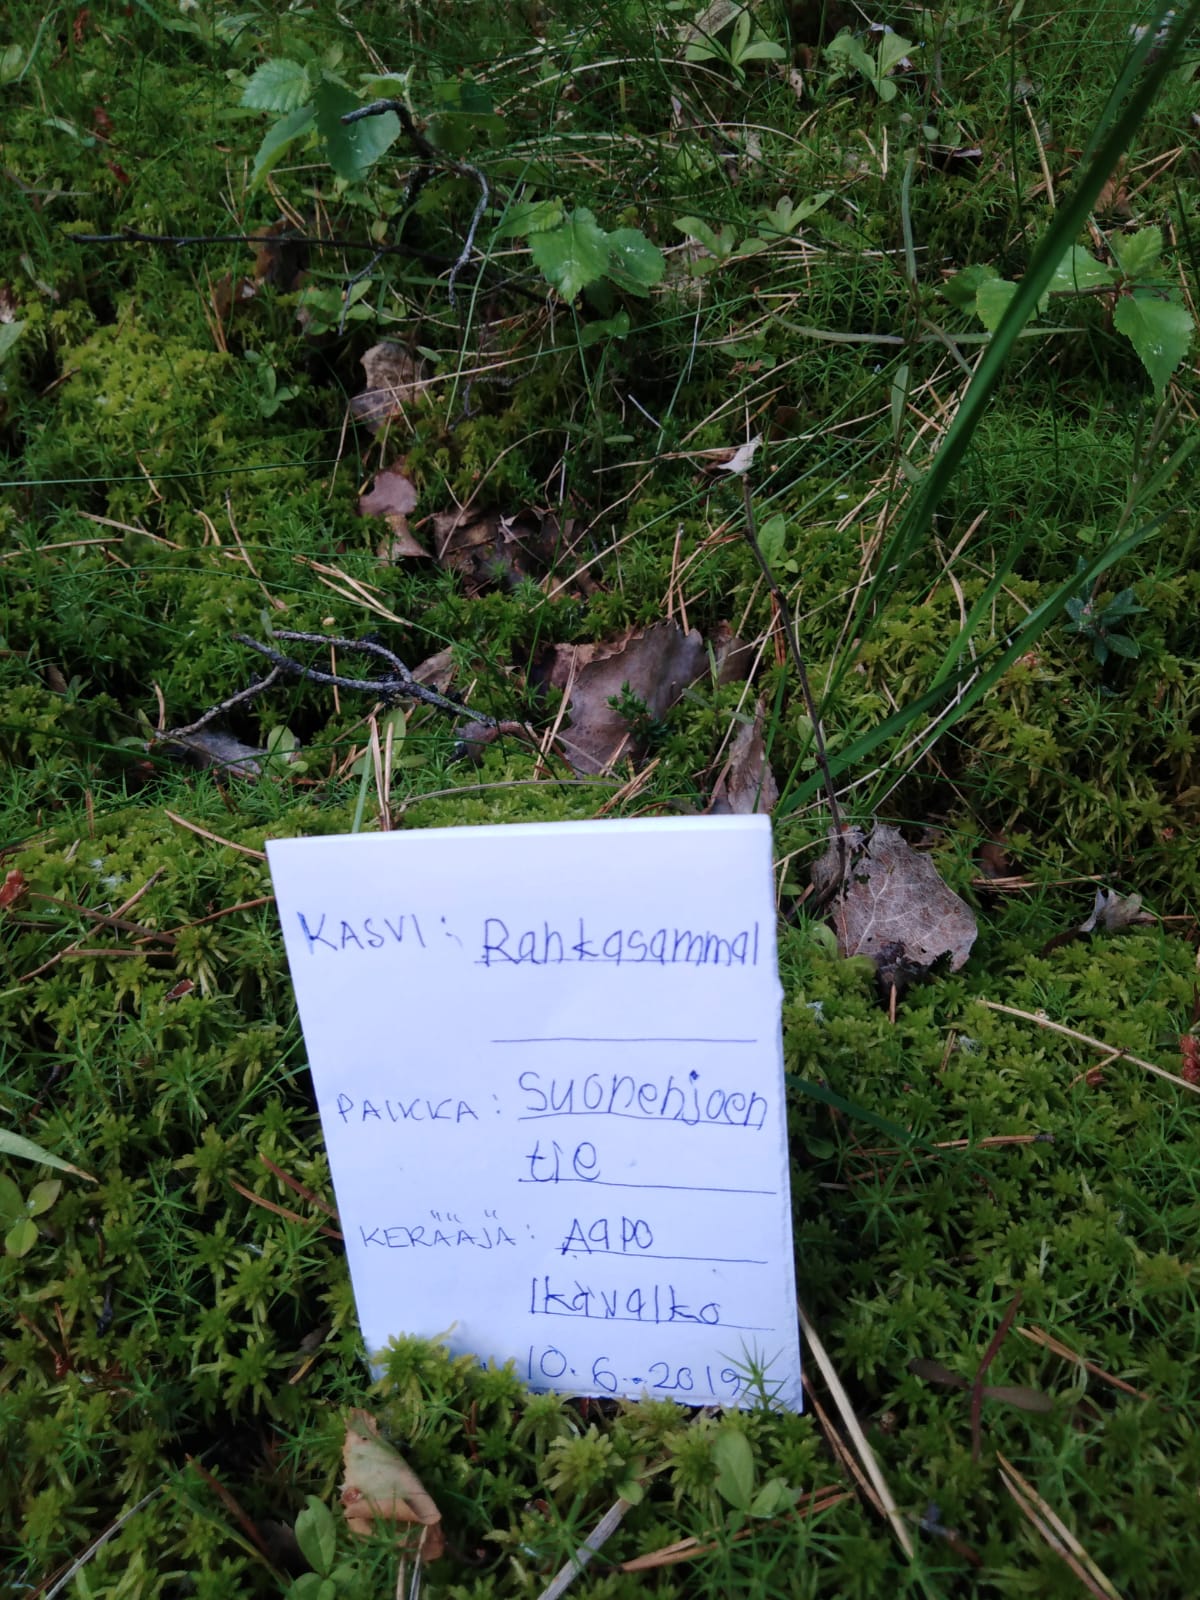 KASVI: Rahkasammal
PAIKKA: Suonenjoen
tie
KERÄÄJÄ: Aapo
Ikävalko
10.6.2019